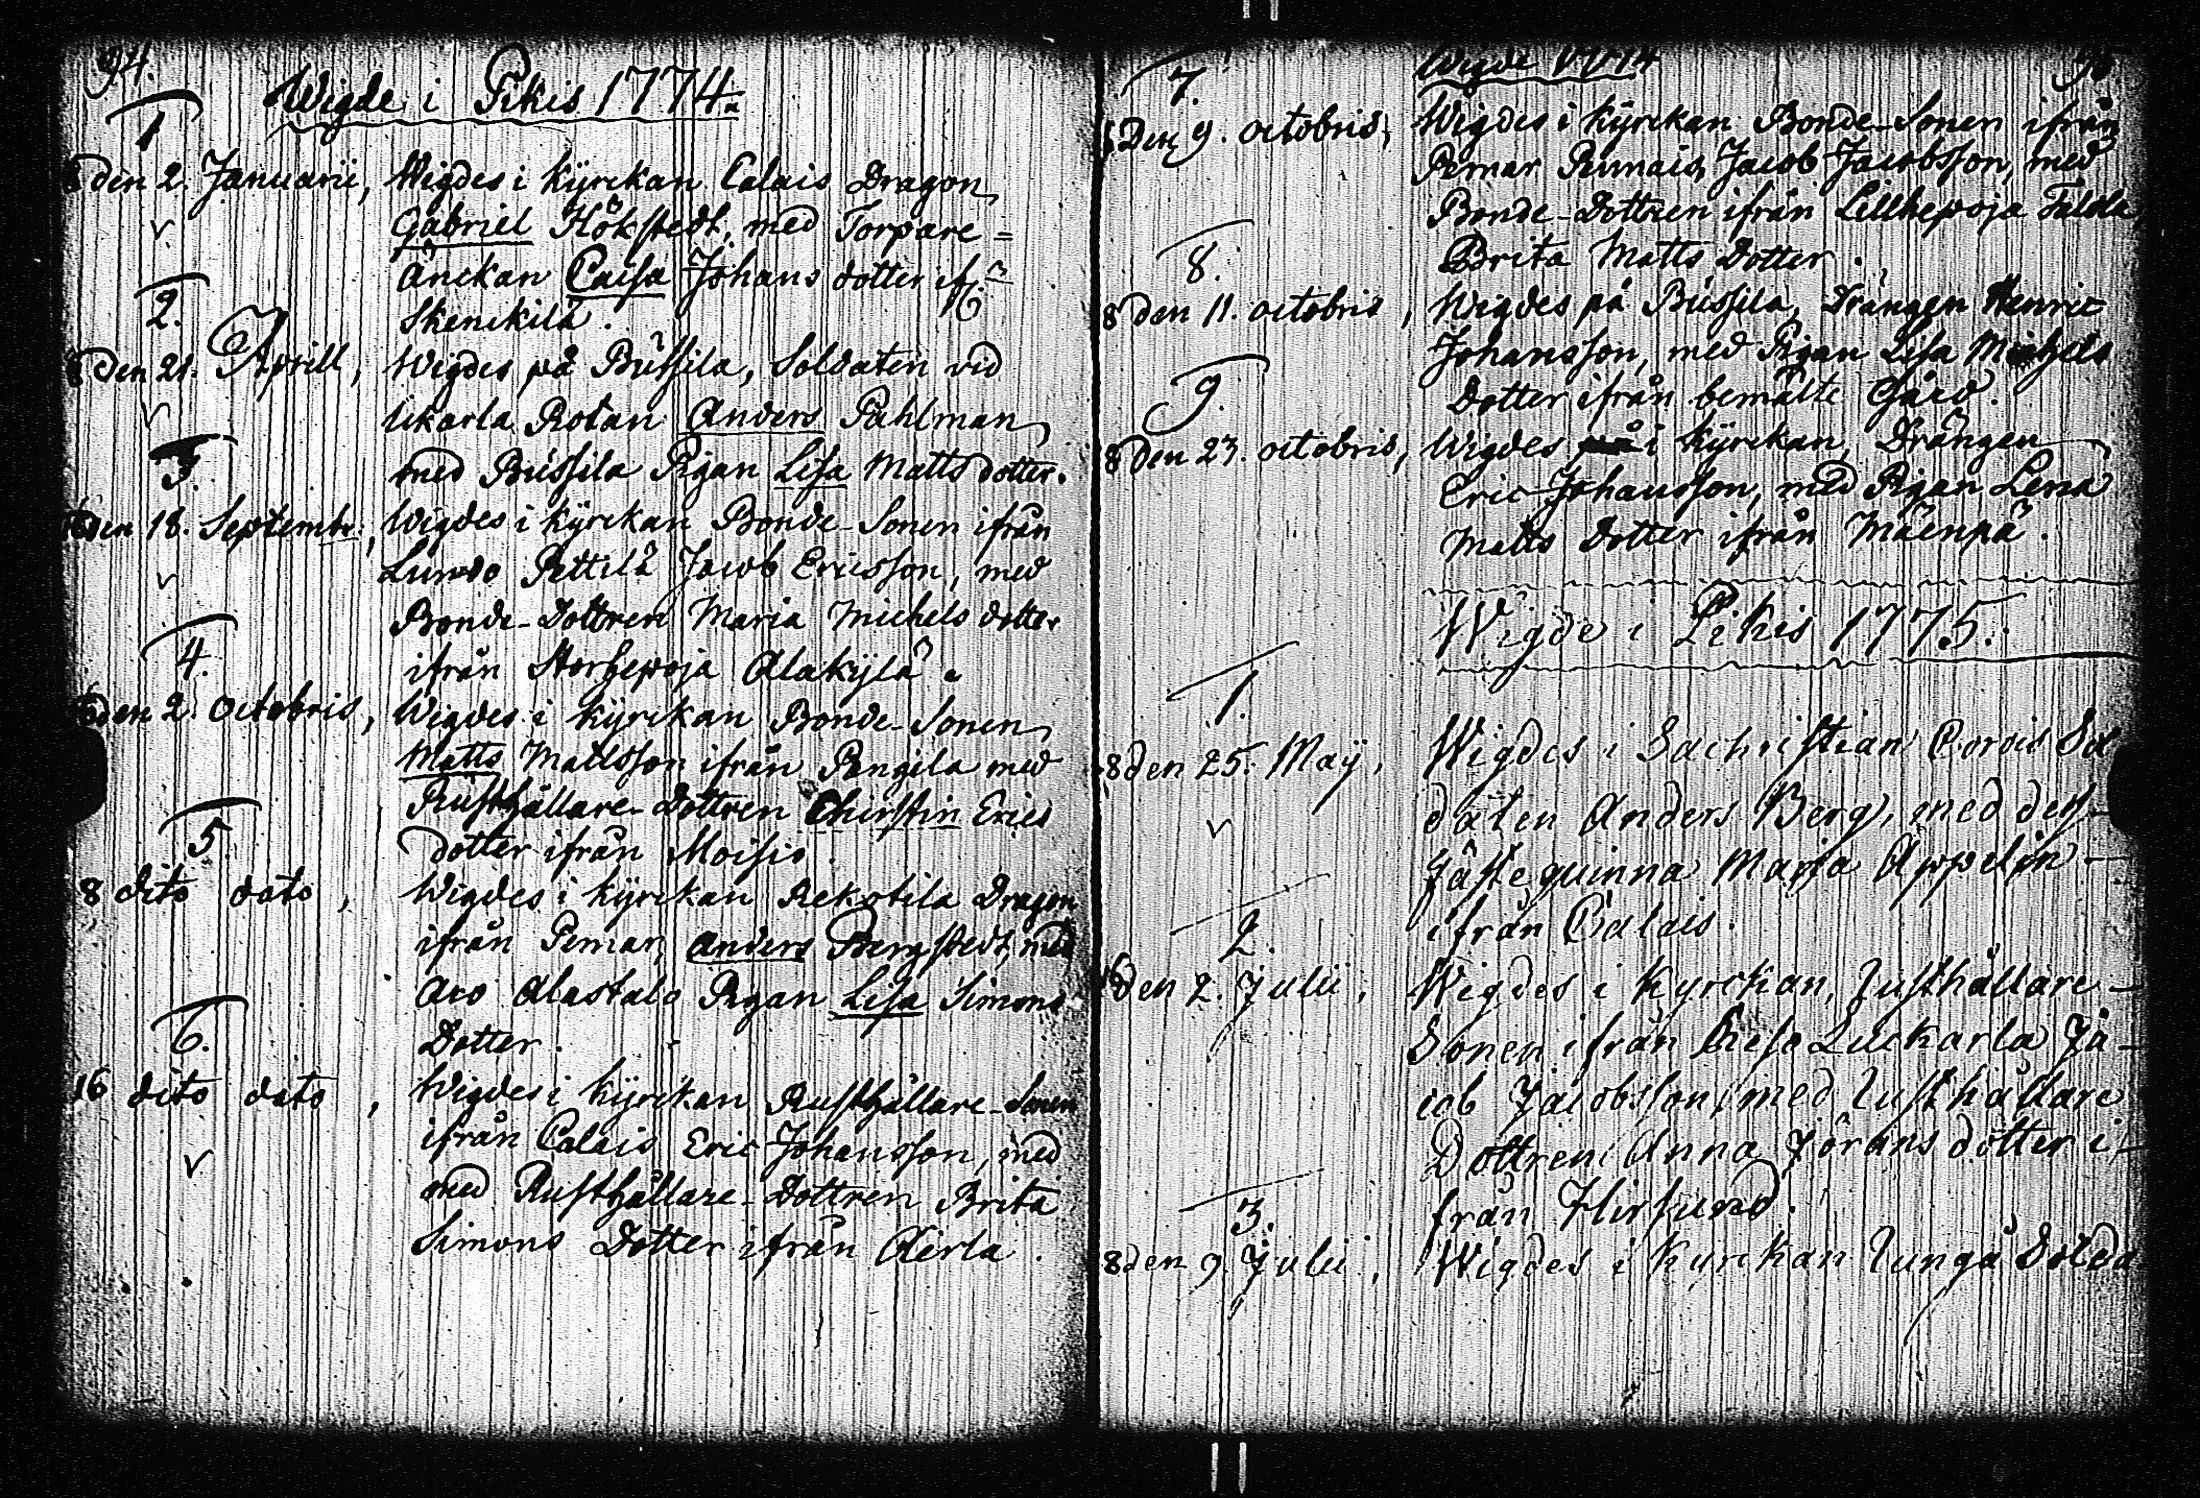 94.
Wigde i Pikis 1774.
1
8 den 2. Januarii, Wigdes i Kÿrckan Calais Dragon
Gabriel Hökstedt, med Torpare=
Änckan Caisa Johans dotter ifr.
Skenckilä.
2.
8 den 21. Aprill, Wigdes på Bússila, Soldaten vid
Ukarla Rotan Anders Pahlman
med Bússila Pigan Lisa Matts dotter.
3.
16 den 18. Septembr., Wigdes i Kÿrckan Bonde-Sonen ifrån
Lundo Pettilä Jacob Ericsson, med
Bonde-Dottren Maria Michels dotter
ifrån Storhepoja Alakÿlä.
4.
16 den 2. Octobris, Wigdes i Kÿrckan Bonde-Sonen
Matts Mattsson ifrån Pengila med
Rusthållare-Dottren Chirstin Erics
dotter ifrån Moisio.
5.
8 dito dato, Wigdes i Kÿrckan Rekotila Dragon
ifrån Pemar, Anders Bergstedt, med
Aro Alastalo Pigan Lisa Simons
Dotter.
6.
16 dito dato, Wigdes i Kÿrckan Rusthållare-Sonen
ifrån Calais Eric Johansson, med
med Rusthållare-Dottren Brita
Simons Dotter ifrån Aerla.
Wigde 1774
7.
Den 9. octobris, Wigdes i Kÿrckan Bonde-Sonen ifrån
Pemar Runais, Jacob Jacobsson, med
Bonde-Dottren ifrån Lillhepoja
Brita Matts Dotter.
8.
8 den 11. octobris, Wigdes på Bússila, Drängen Henric
Johansson, med Pigan Lisa Michels
Dotter ifrån bemälte Gård.
9.
8 den 23. octobris, Wigdes i Kÿrckan, Drängen
Eric Johansson, med Pigan Lena
Matts Dotter ifrån Mäenpä.
Wigde i Pikis 1775.
1.
8 den 25. Maÿ, Wigdes i Sachristian Corois Sol
daten Anders Berg, med dess
fästequinna Maria Appelin
ifrån Calais.
2.
16 den 2. Julii, Wigdes i Kyrckan, Rusthållare-
Sonen ifrån Reso Luckarla Ja-
cob Jacobsson, med Rusthållare
Dottren Anna Jörans dotter i-
från Hirsund.
3.
8 den 9. Julii, Wigdes i Kyrckan Runga Solda